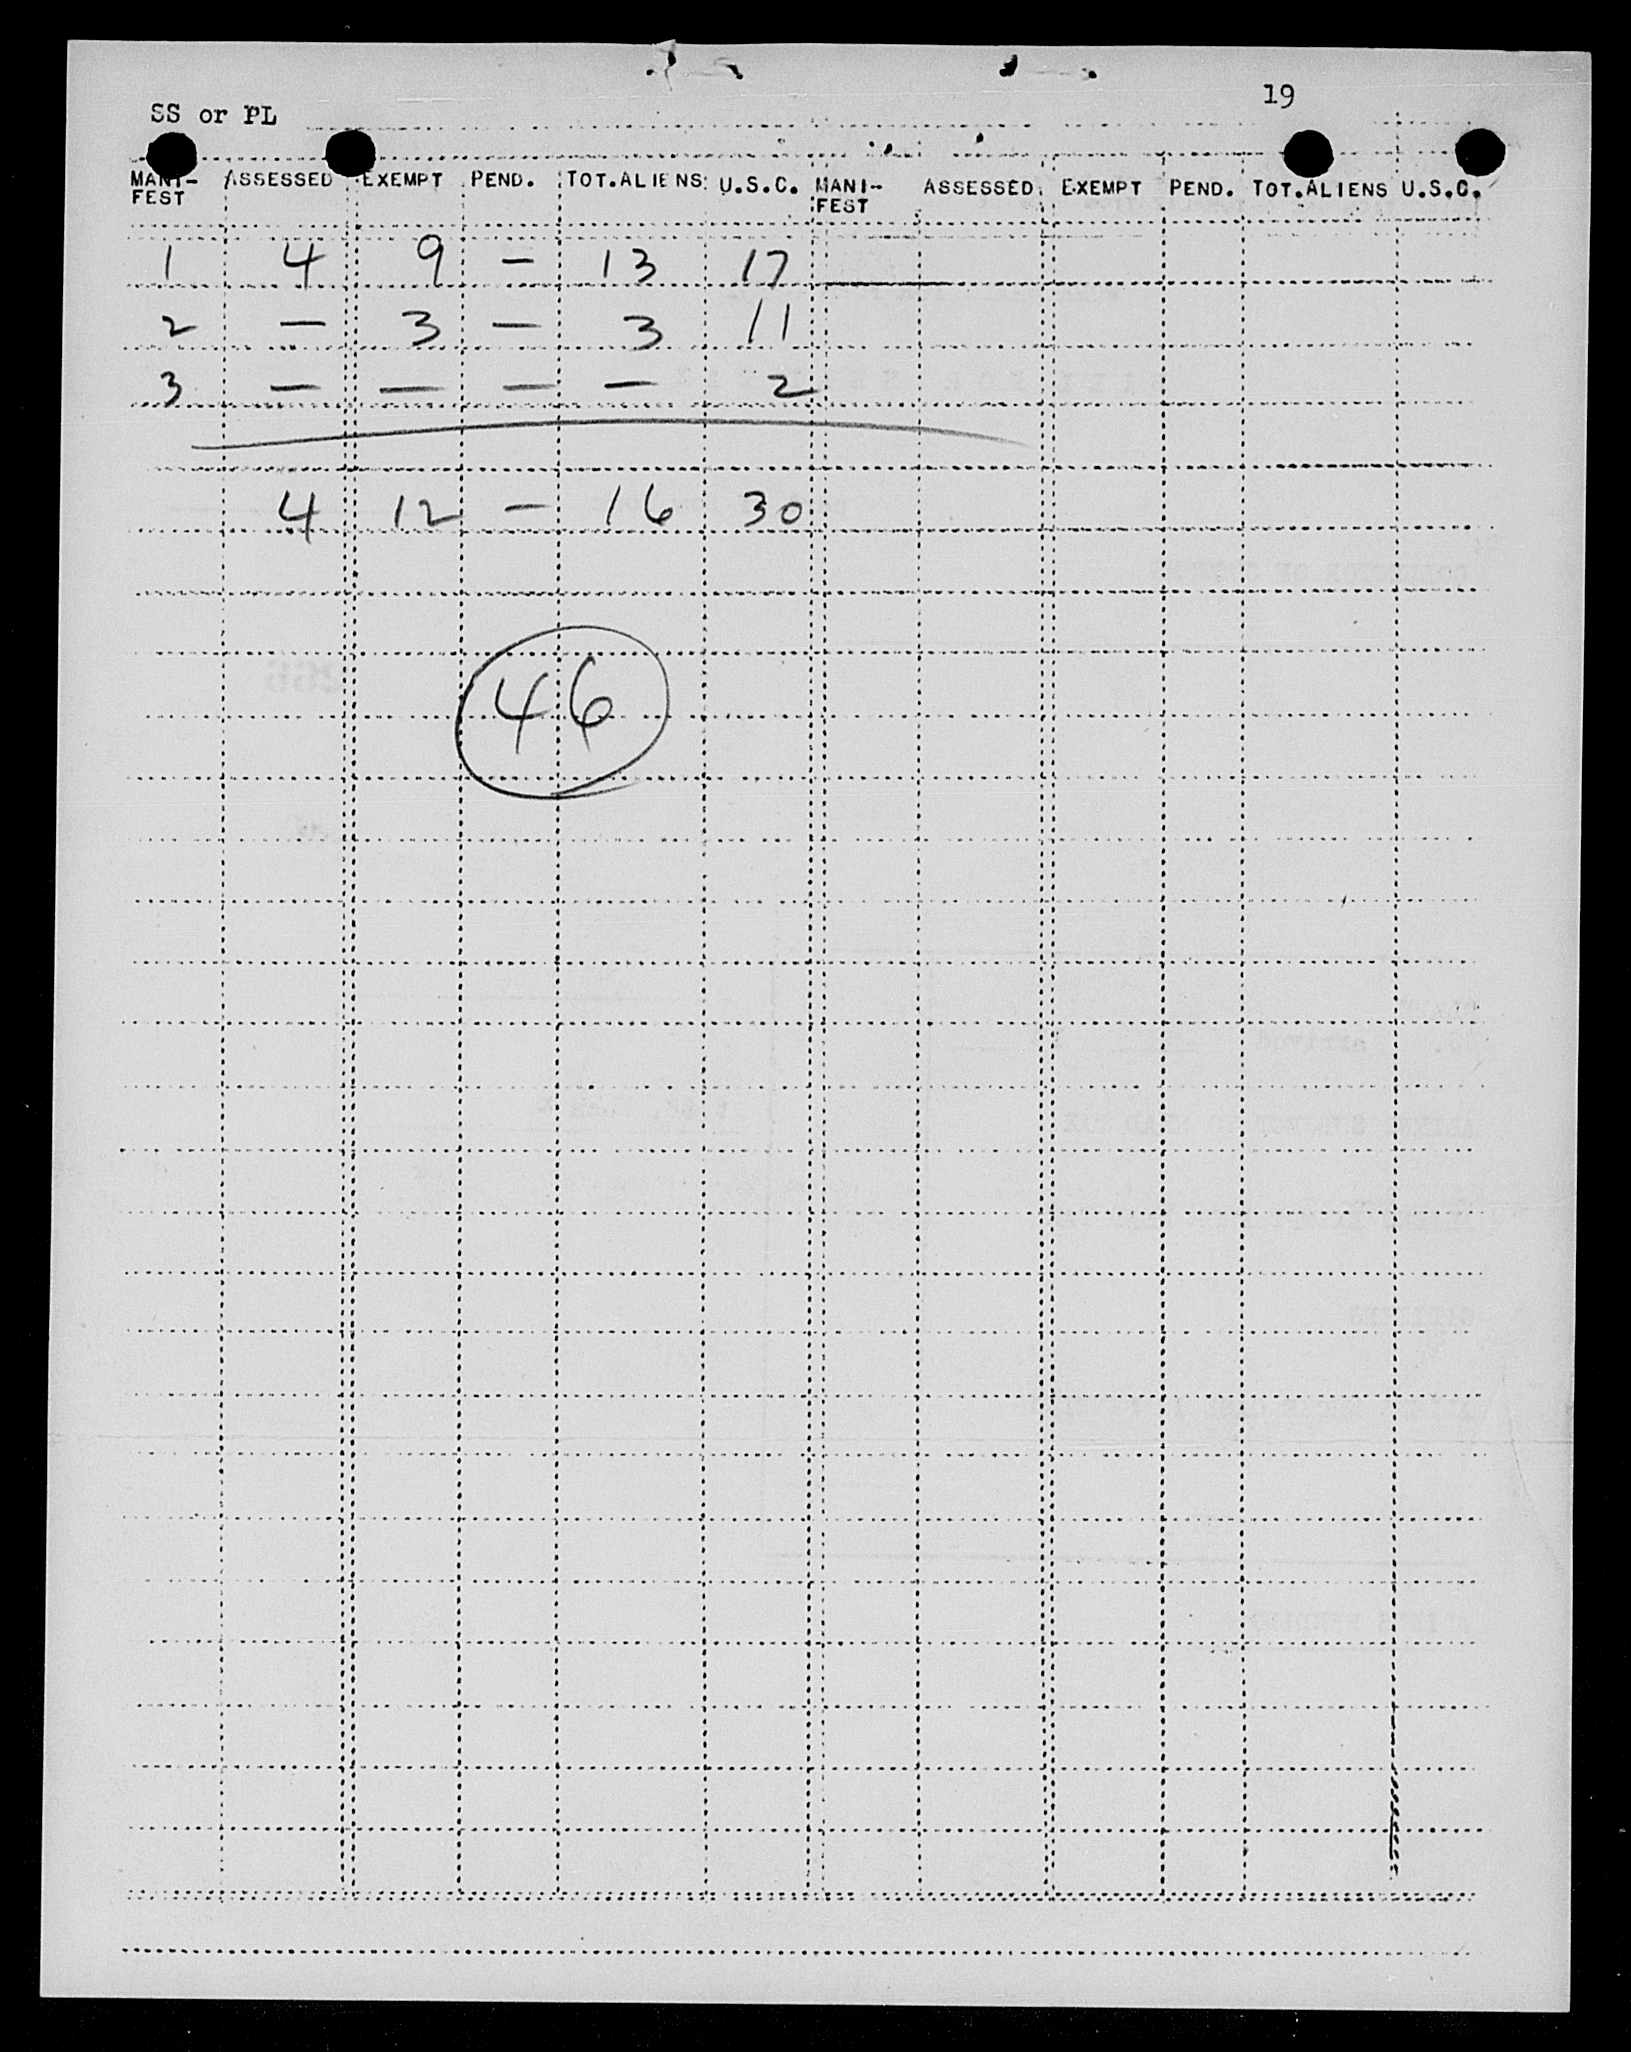 19
SS or PL
MANI- ASSESSED EXEMPT PEND. TOT.ALIENS U.S.C. MANI- ASSESSED EXEMPT PEND. TOT.ALIENS U.S.C.
FEST FEST
1 4 9 - 13 17
2 - 3 - 3 11
3 - - - - 2
4 12 - 16 30
46